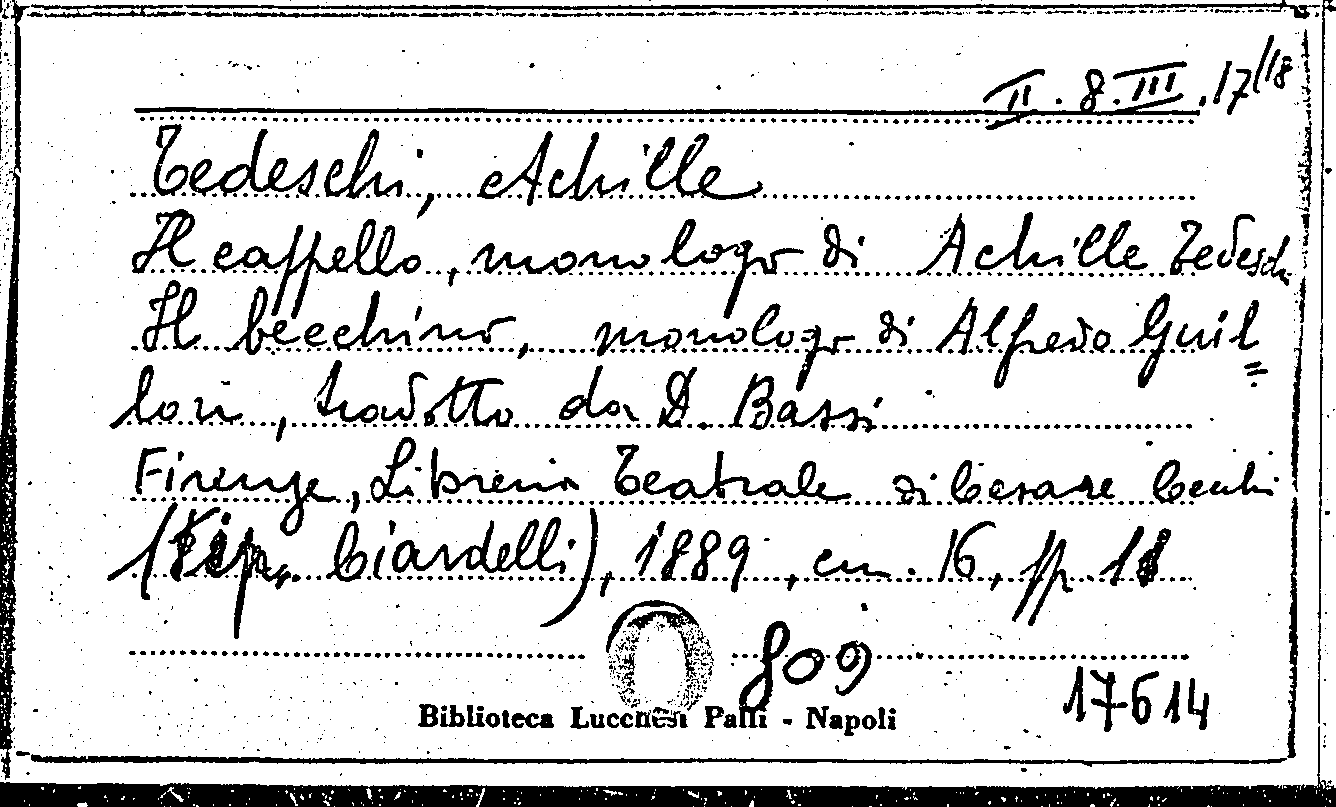 II. 8. III. 17/18
Tedeschi, Achille
Il cappello, monologo di Achille Tedeschi
Il becchino, monologo di Alfredo Guil=
lon, tradotto da D. Bassi
Firenze, Libreria Teatrale di Cesare Cecchi
(Tip. Ciardelli), 1889, cm. 16, pp.
809
17614
Biblioteca Lucchesi Palli - Napoli